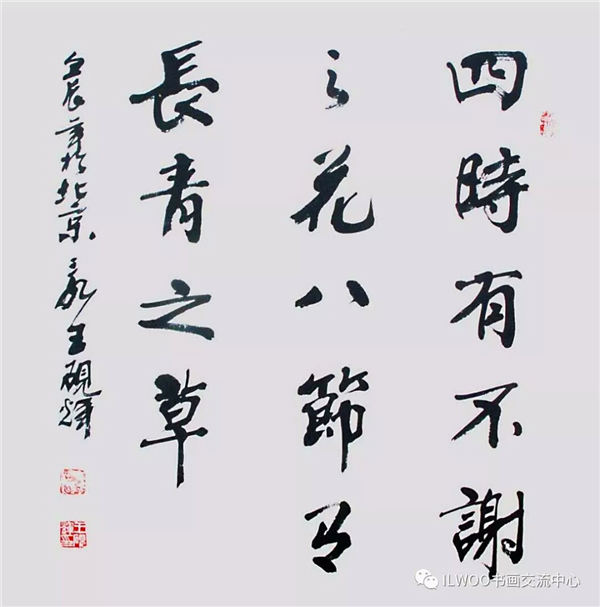 四時有不謝
之花八節有
長青之草
壬辰於北京王硯輝
ILWOO书画交流中心